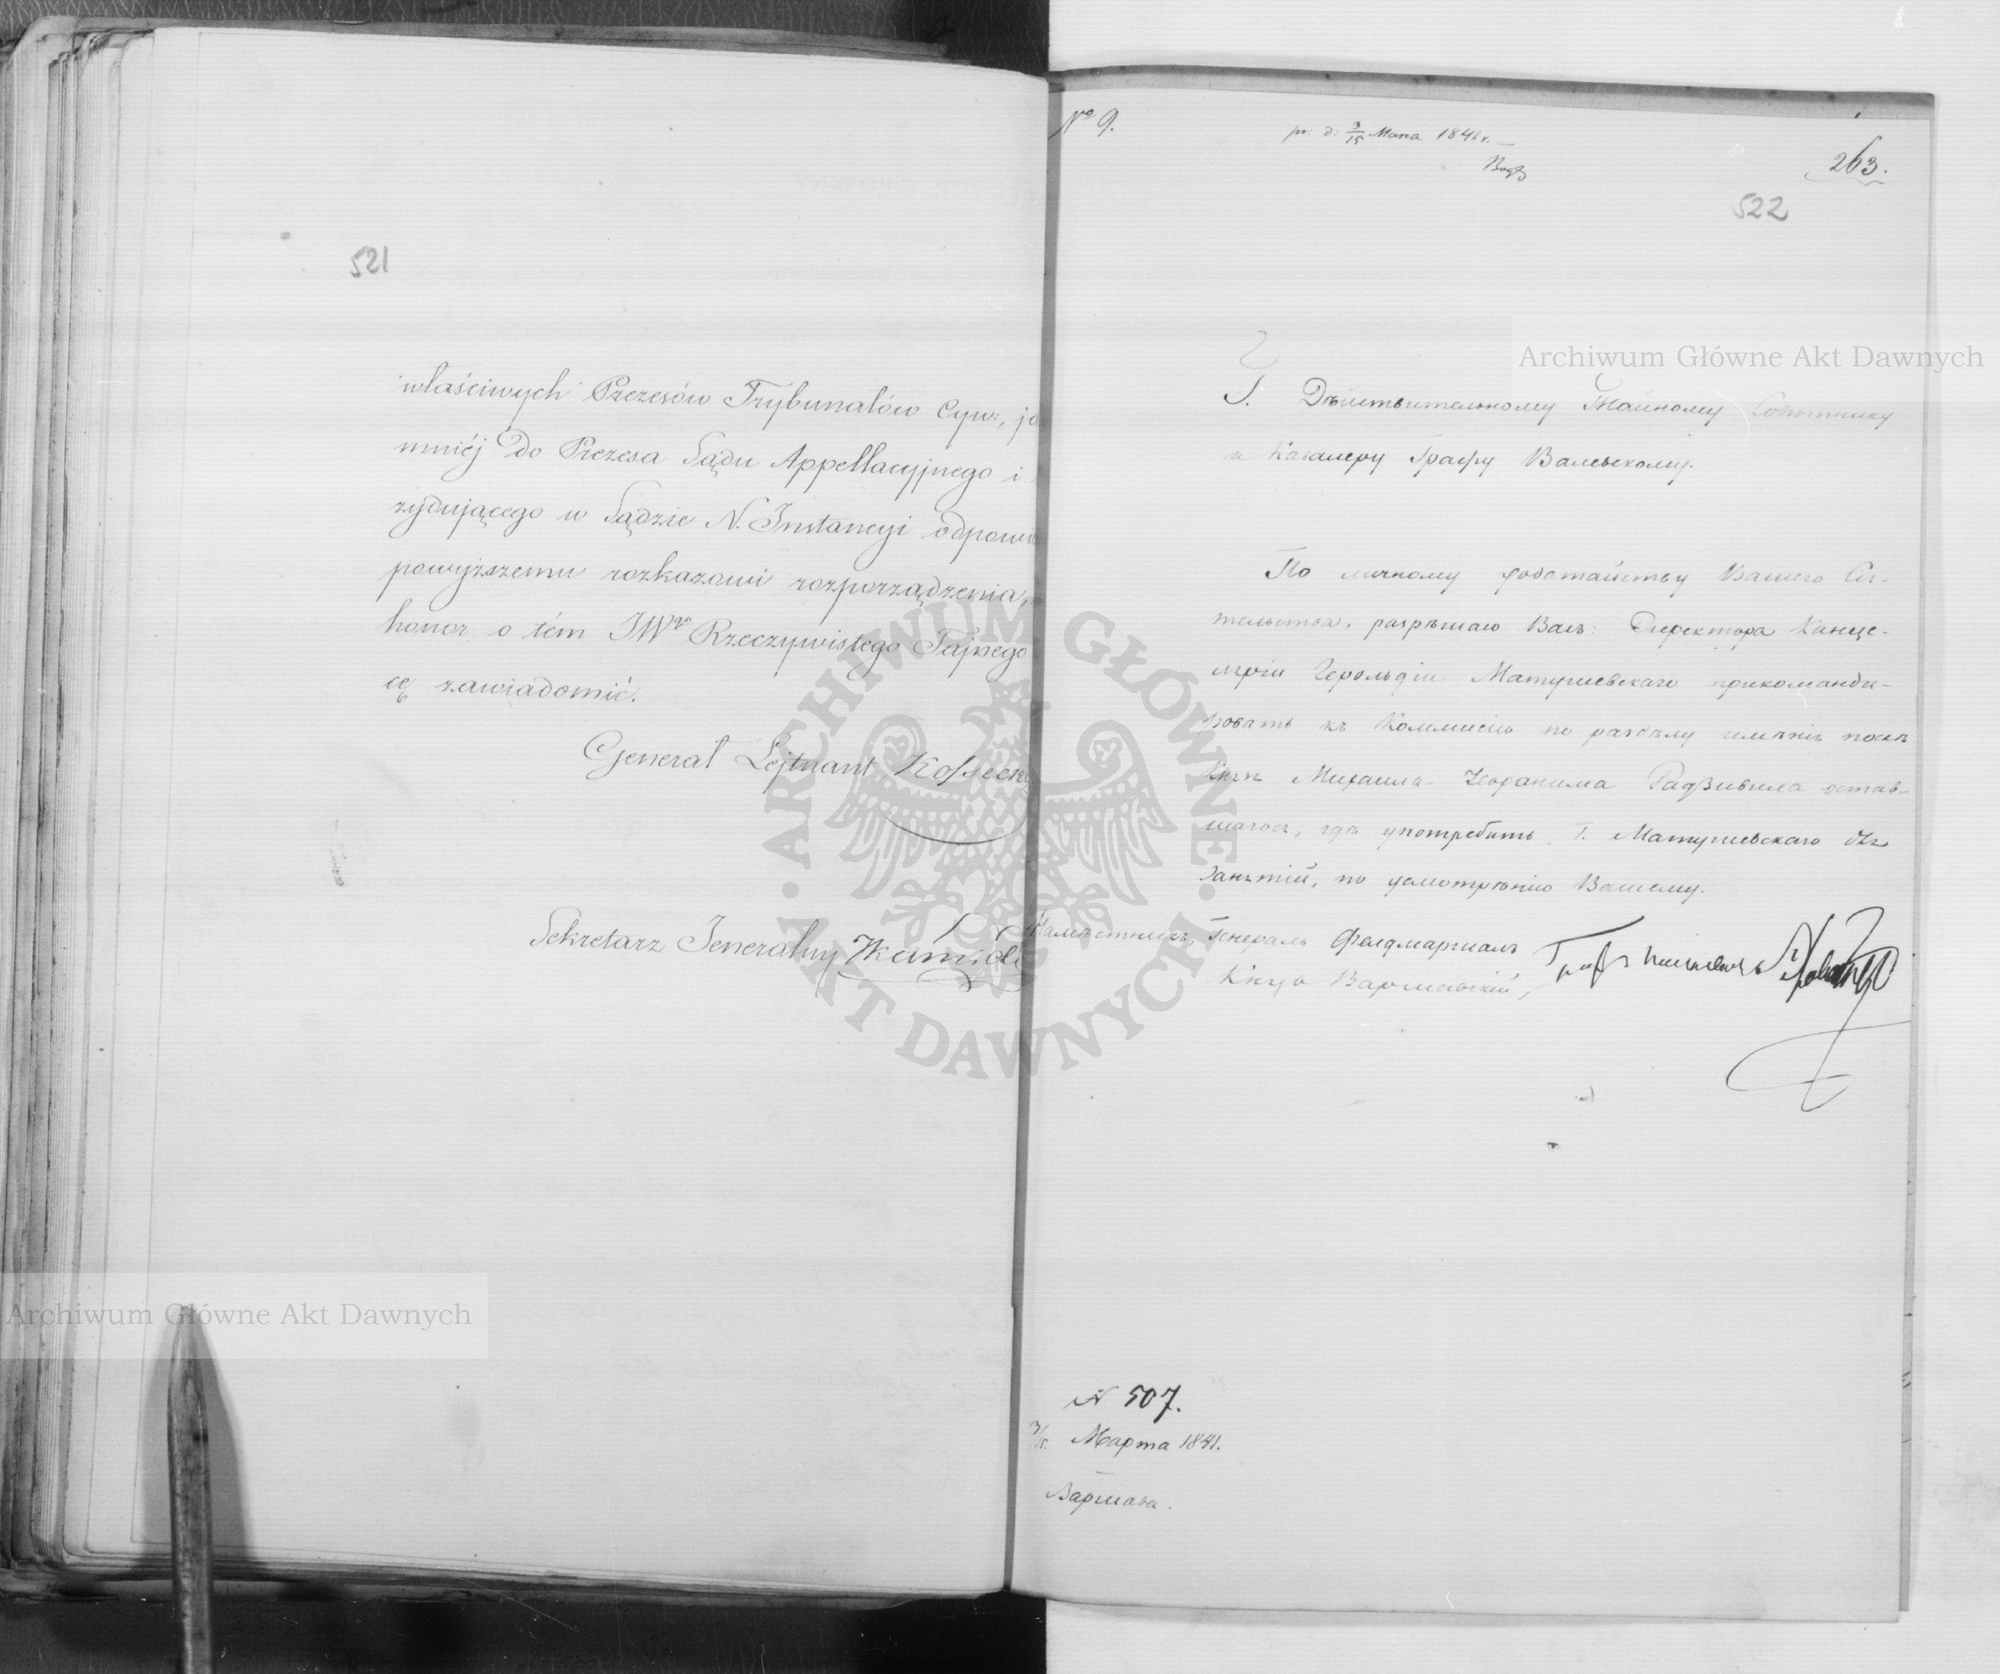 521
właściwych Prezesów Trybunałów Cyw:,
mniéj do Prezesa Sądu Appellacyjnego i
zydującego w Sądzie N. Instancyi
powyższemu rozkazowi rozporządzenia,
honor o tém JWgo Rzeczywistego Tajnego
cę zawiadomić.
Generał Lejtnant
Sekretarz Jeneralny
No 9.
pr: d: 3/15 Marca 1841 r.
263.
522
Г. Дѣйствительному Тайному Совѣтнику
и Кавалеру Графу Валевскому.
По личному ходатайству Вашего Сія-
тельства, разрѣшаю Вамъ: Директора Канце-
ляріи Герольдіи Матушевскаго прикоманди-
ровать къ Коммисіи по раздѣлу имѣнія послѣ
Князя Михаила-Іеронима Радзивила остав-
шагося, гдѣ употребить Г. Матушевскаго къ
занятій, по усмотрѣнію Вашему.
Намѣстникъ, Генералъ Фелдмаршалъ
Князь Варшавскій, Графъ
N 507.
3/15. Марта 1841.
Варшава.
Archiwum Główne Akt Dawnych
Archiwum Główne Akt Dawnych
ARCHIWUM GŁÓWNE AKT DAWNYCH